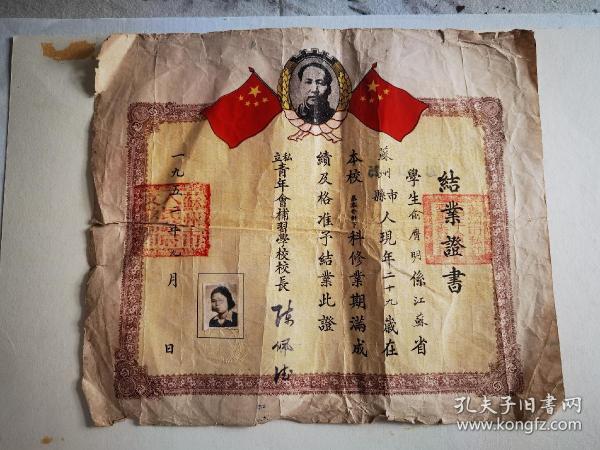 結業證書
學生俞膺明係江蘇省
蘇州市縣人現年二十九歲在
本校科修業期滿成
績及格准予結業此證
私立青年會補習學校校長 陳佩德
一九五一年九月 日
孔夫子旧书网
www.kongfz.com